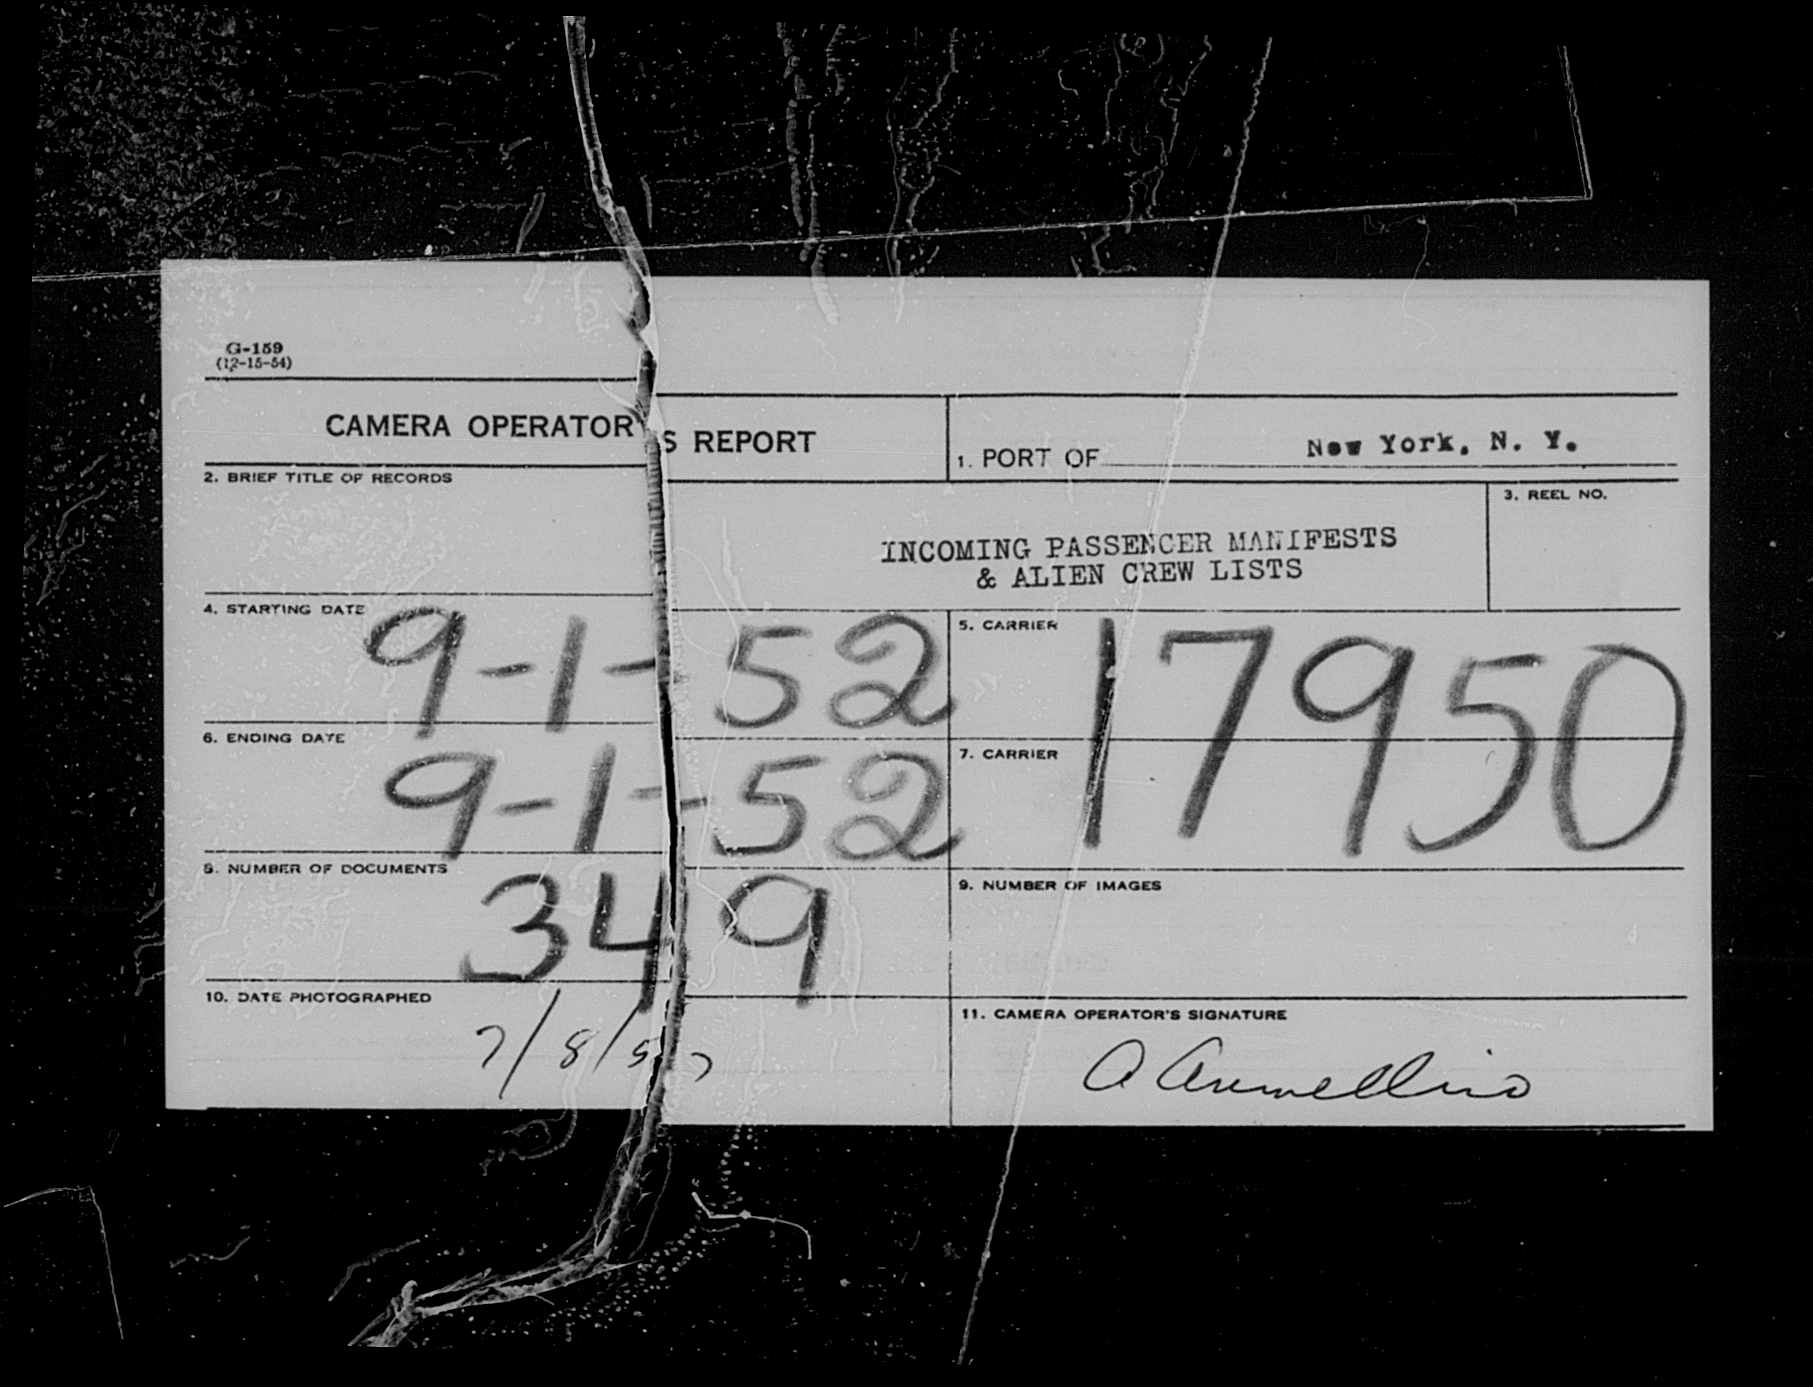 G-159
(12-15-54)
CAMERA OPERATOR'S REPORT
1. PORT OF New York, N. Y.
2. BRIEF TITLE OF RECORDS
INCOMING PASSENGER MANIFESTS
& ALIEN CREW LISTS
3. REEL NO.
4. STARTING DATE 9-1-52
5. CARRIER 17950
6. ENDING DATE 9-1-52
7. CARRIER
8. NUMBER OF DOCUMENTS 349
9. NUMBER OF IMAGES
10. DATE PHOTOGRAPHED 7/8/57
11. CAMERA OPERATOR'S SIGNATURE